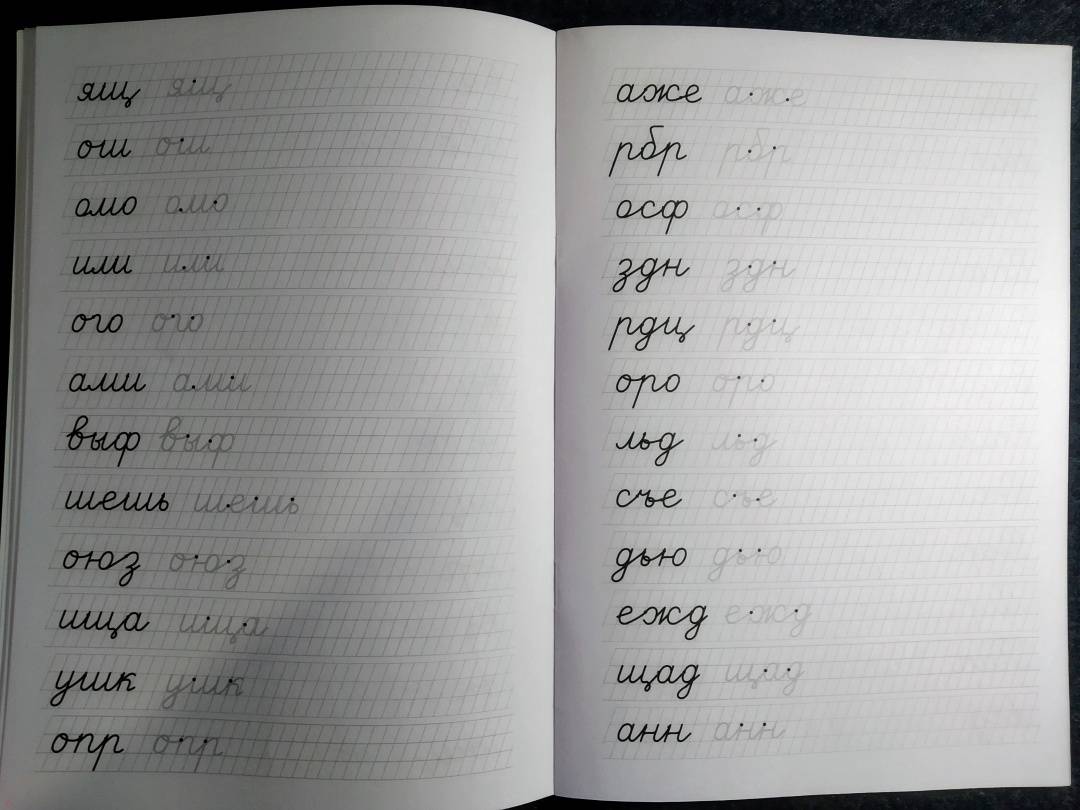 ящ ящ
ош ош
омо омо
или или
ого ого
ами ами
выф выф
шешь шешь
оюз оюз
ища ища
ушк ушк
опр опр
аже аже
рбр рбр
осф осф
здн здн
рдц рдц
оро оро
льд льд
съе съе
дью дью
ежд ежд
щад щад
анн анн